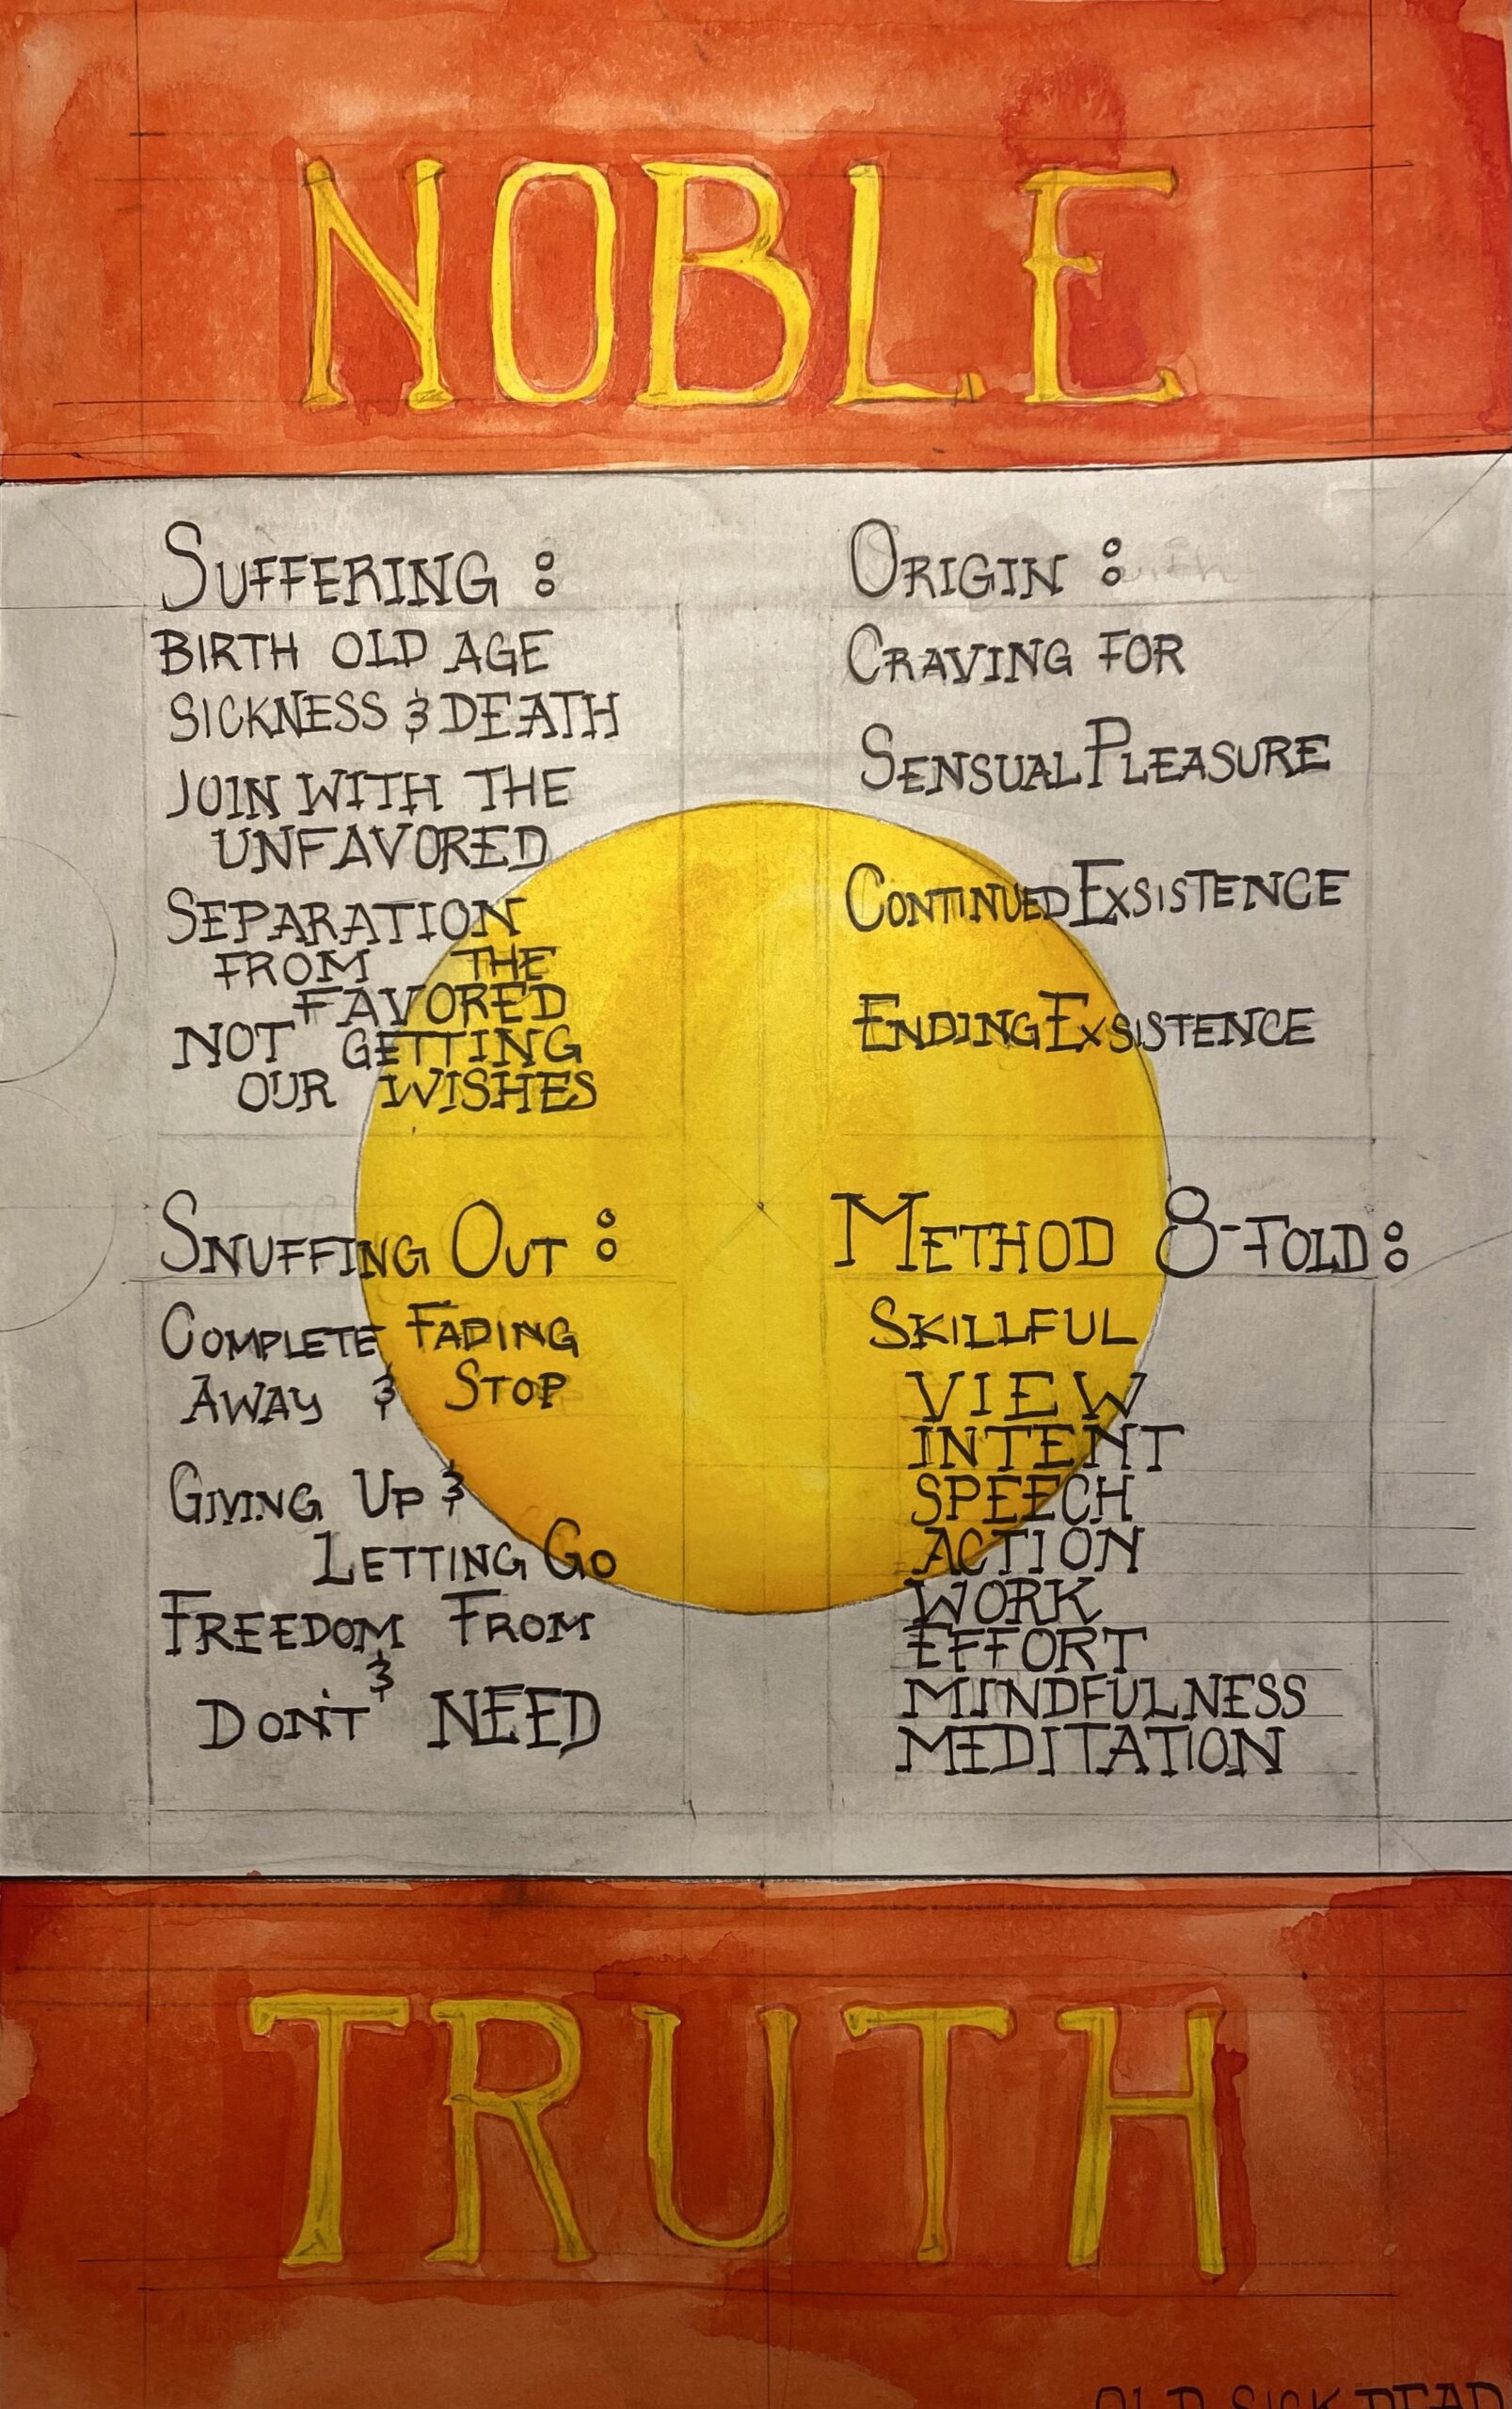 NOBLE
SUFFERING :
BIRTH OLD AGE
SICKNESS & DEATH
JOIN WITH THE
UNFAVORED
SEPARATION
FROM THE
FAVORED
NOT GETTING
OUR WISHES
ORIGIN :
CRAVING FOR
SENSUAL PLEASURE
CONTINUED EXSISTENCE
ENDING EXSISTENCE
SNUFFING OUT :
COMPLETE FADING
AWAY & STOP
GIVING UP &
LETTING GO
FREEDOM FROM
&
DON'T NEED
METHOD 8-FOLD :
SKILLFUL
VIEW
INTENT
SPEECH
ACTION
WORK
EFFORT
MINDFULNESS
MEDITATION
TRUTH
OLD SICK DEAD